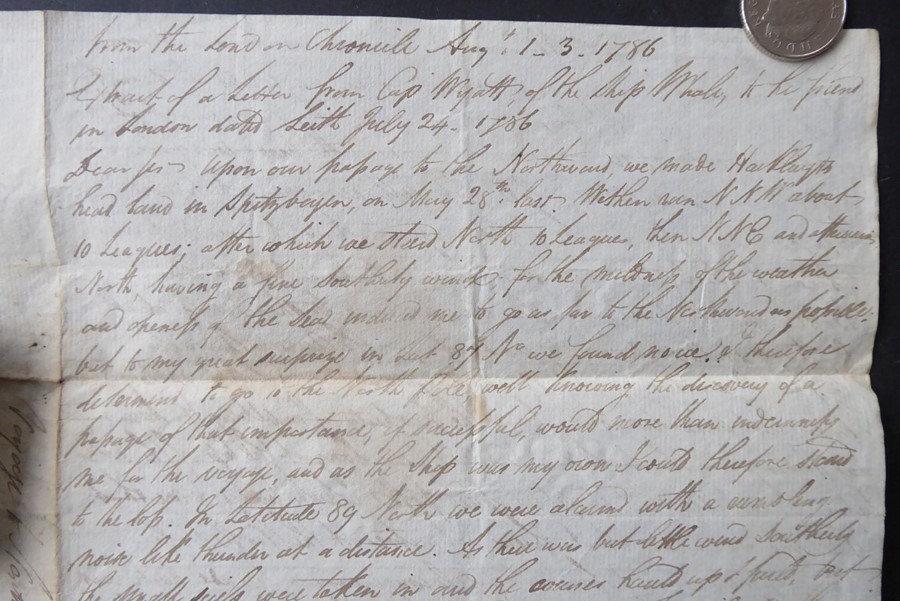 from the London Chronicle Augt. 1-3-1786
Extract of a Letter from Cap Wyatt, of the ship Whale, to his friend
in London dated Leith July 24-1786
Dear sir- upon our passage to the Northward, we made Hackluyts
head land in Spitzbergen, on May 28th last. We then run NNW about
10 Leagues; after which we steerd North 10 Leagues, then NNE and afterwards
North, having a fine southerly wind; for the mildness of the weather
and openess of the Sea induced me to go as far to the Northward as possible;
but to my great surprize in Lat No we found no ice. I therefore
determind to go to the North Pole well knowing the discovery of a
passage of that importance, if successful, would more than indemnify
me for the voyage, and as the Ship was my own I could therefore stand
to the loss. In Latitude 89 North we were alarmd with a rumbling
noise like thunder at a distance. As there was but little wind Southerly
the small sails were taken in and the courses hauld up & furld, but
Voyage to